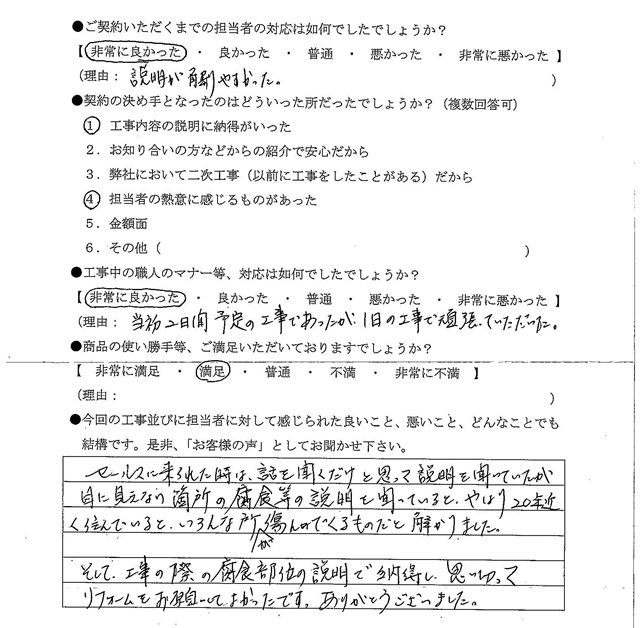 ●ご契約いただくまでの担当者の対応は如何でしたでしょうか？
【 非常に良かった ・ 良かった ・ 普通 ・ 悪かった ・ 非常に悪かった 】
（理由： 説明が解りやすかった。 ）
●契約の決め手となったのはどういった所だったでしょうか？（複数回答可）
① 工事内容の説明に納得がいった
２．お知り合いの方などからの紹介で安心だから
３．弊社において二次工事（以前に工事をしたことがある）だから
④ 担当者の熱意に感じるものがあった
５．金額面
６．その他（ ）
●工事中の職人のマナー等、対応は如何でしたでしょうか？
【 非常に良かった ・ 良かった ・ 普通 ・ 悪かった ・ 非常に悪かった 】
（理由： 当初2日間予定の工事であったが、1日の工事で頑張っていただいた。
●商品の使い勝手等、ご満足いただいておりますでしょうか？
【 非常に満足 ・ 満足 ・ 普通 ・ 不満 ・ 非常に不満 】
（理由： ）
●今回の工事並びに担当者に対して感じられた良いこと、悪いこと、どんなことでも
結構です。是非、「お客様の声」としてお聞かせ下さい。
セールスに来られた時は、話を聞くだけと思って説明を聞いていたが
目に見えない箇所の腐食等の説明を聞っていると、やはり20年近
く住んでいると、いろんな所が傷んのでくるものだと解かりました。
そして、工事の際の腐食部位の説明で納得し、思い切って
リフォームをお願いしてよかったです。ありがとうございました。